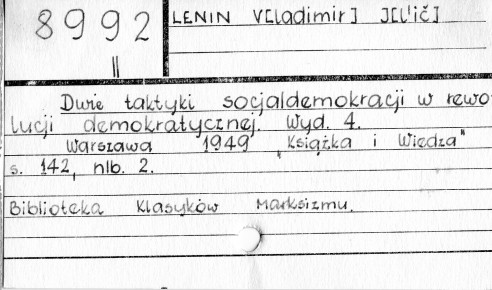 8992
II
LENIN V[ladimir] J[l'ič]
Dwie taktyki socjaldemokracji w rewo
lucji demokratycznej. Wyd. 4.
Warszawa 1949 „Książka i Wiedza"
s. 142, nlb. 2.
Biblioteka Klasyków Marksizmu.